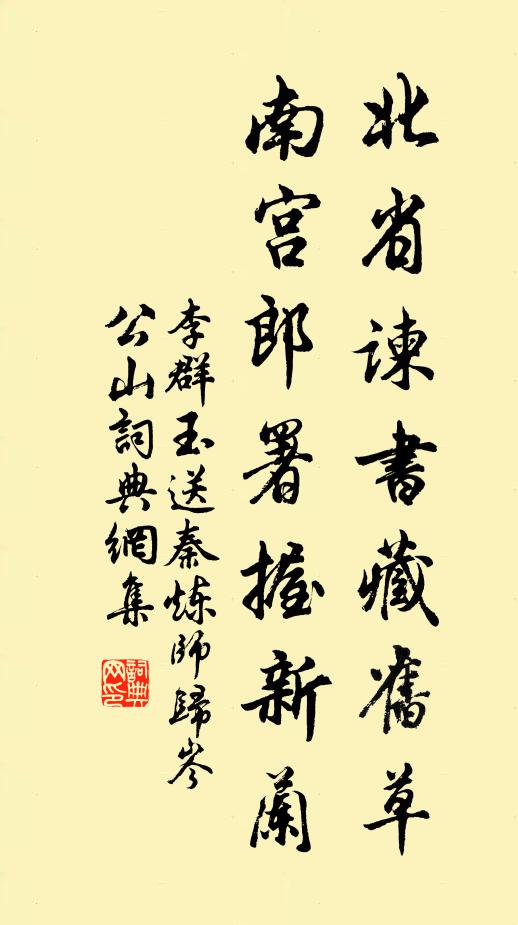 北省諫書藏舊草
南宮郎署握新蘭
李群玉送秦炼師歸岑
公山詞典網集
詞典网印